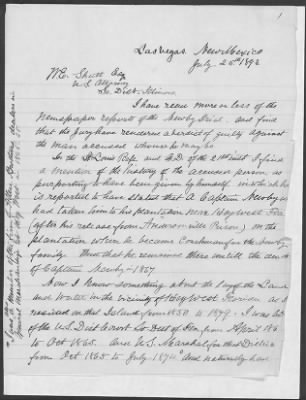 1
Las Vegas New Mexico
July 20th 1892
W.E. Shutt Esq
U S Attorney
So Dist Illinois
I have read more or less of the
Newspaper reports of the Newby trial, and find
that the jury have rendered a verdict of guilty against
the man accused whoever he may be.
In the St Louis Rep. of the 21st inst I find
a mention of the history of the accused person, as
purporting to have been given by himself, in which he
is reported to have stated that a Captain Newby
had taken him to his plantation near Key West Fla
(after his release from Andersonville Prison) on the
plantation when he became Coachman for the Newby
family. And that he remained there until the death
of Captain Newby - 1867
Now I know something about the lay of the Land
and Water in the vicinity of Key West Florida as I
resided on that Island from 1850 to 1879. I was
of the U.S. Dist Court So Dist of Fla from April 186
to Oct 1865. and U.S. Marshal for that District
from Oct 1865 to July 1874 and naturally have
I was a member of the firm of
dealers in
general merchandise at Key West